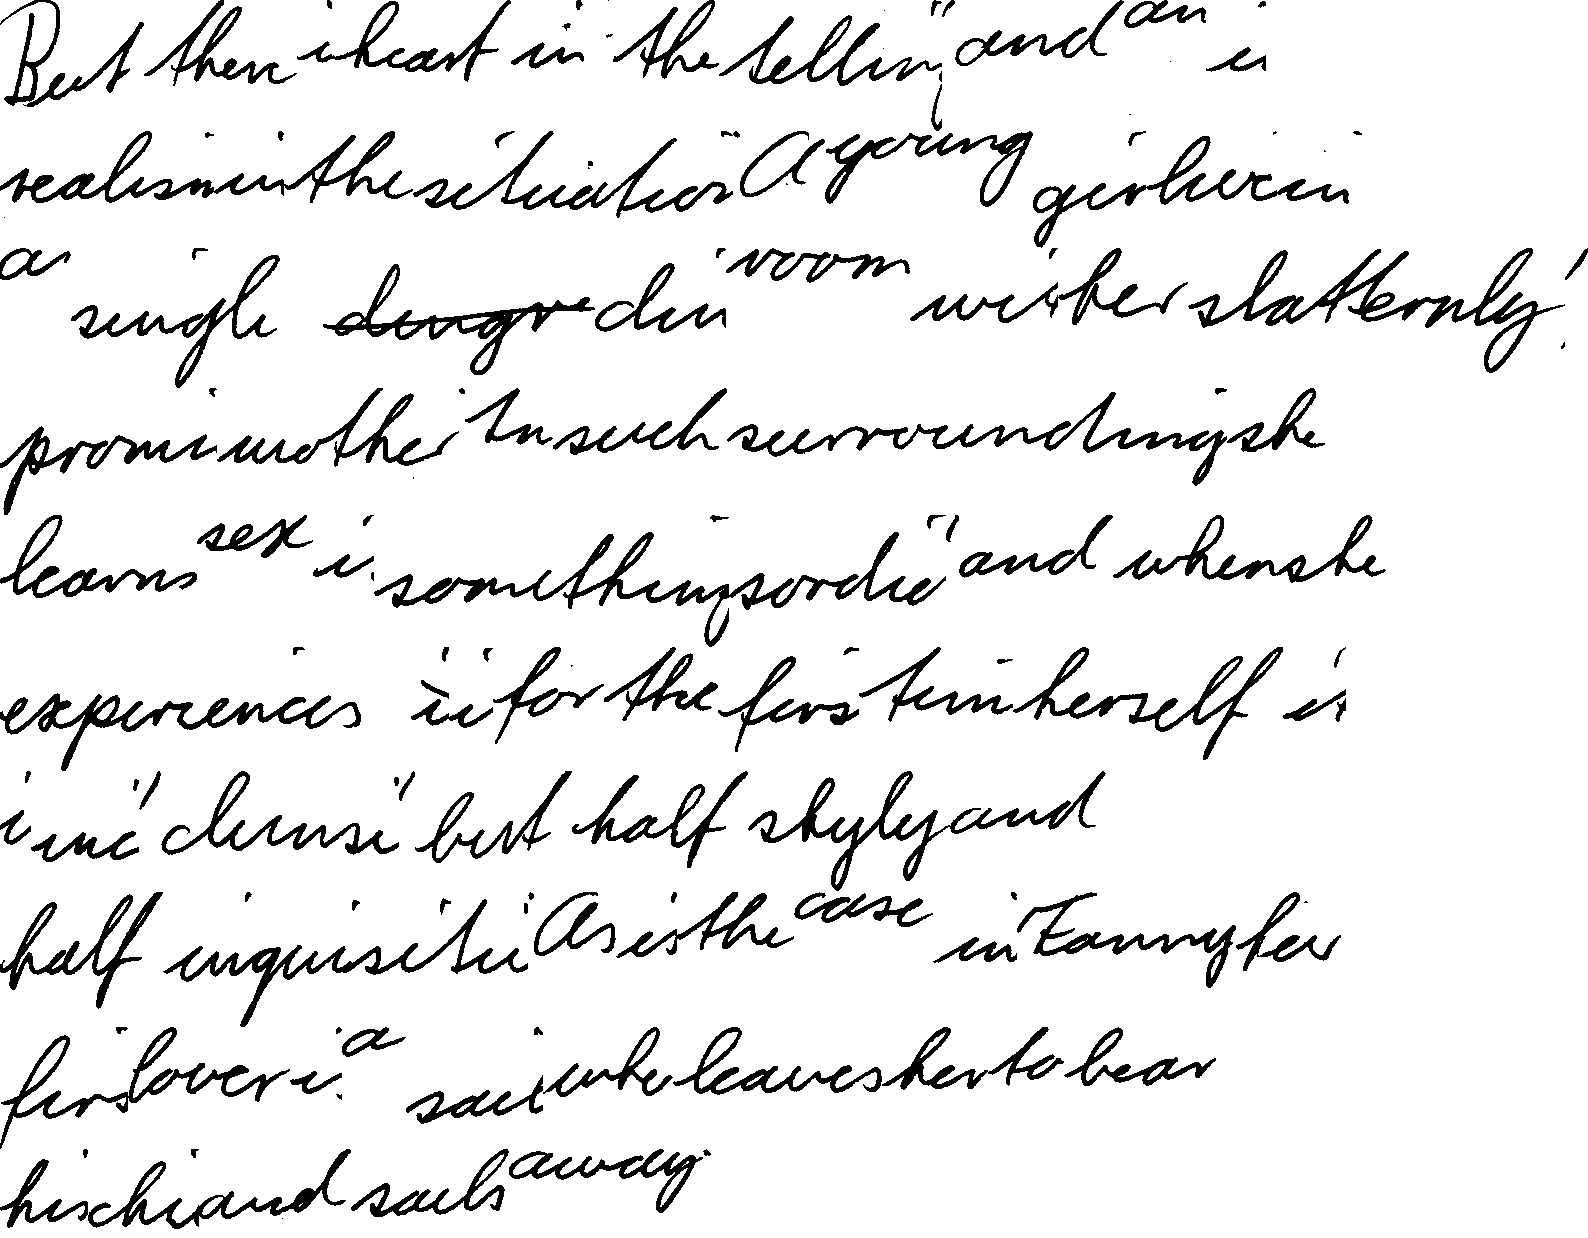 But there is heart in the telling, and an
realism in the situation. A young girl lives in
a single din room with her slatternly,
promi mother. In such surroundings she
learns sex is something sordid, and when she
experiences it for the first time herself it is
but half shyly and
half inquisitive. As is the case in Fanny her
first lover is a sail who leaves her to bear
his chi and sails away.